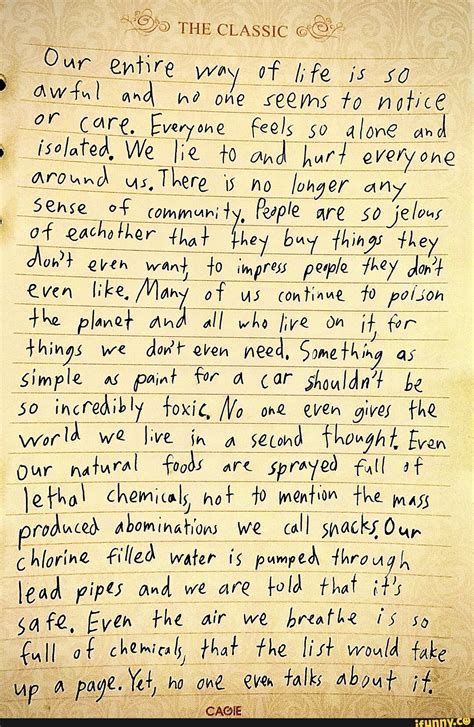 THE CLASSIC
Our entire way of life is so
awful and no one seems to notice
or care. Everyone feels so alone and
isolated. We lie to and hurt everyone
around us. There is no longer any
sense of community. People are so jelous
of eachother that they buy things they
don't even want, to impress people they don't
even like. Many of us continue to poison
the planet and all who live on it, for
things we don't even need. Something as
simple as paint for a car shouldn't be
so incredibly toxic. No one even gives the
world we live in a second thought. Even
our natural foods are sprayed full of
lethal chemicals, not to mention the mass
produced abominations we call snacks. Our
chlorine filled water is pumped through
lead pipes and we are told that it's
safe. Even the air we breathe is so
full of chemicals, that the list would take
up a page. Yet, no one even talks about it.
CAGIE
ifunny.co